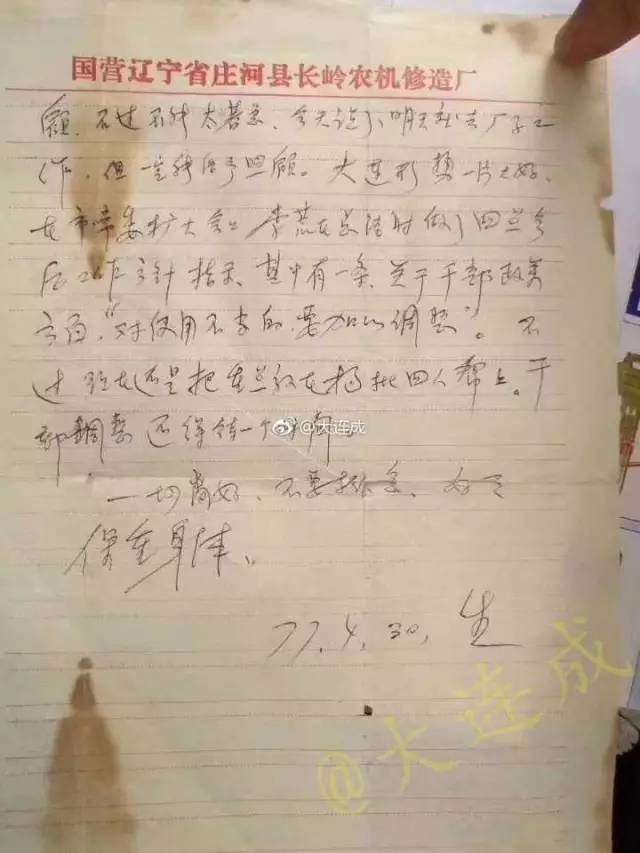 国营辽宁省庄河县长岭农机修造厂
顾。不过不能太着急，今天说了明天就去厂子工
作，但是能给予照顾。大连形势一片大好，
在市常委扩大会上 李荒在总结时做了四点今
后工作方针指示。其中有一条，关于干部政策
方面，“对使用不当的，要加以调整”。不
过现在还是把重点放在揭批四人帮上。干
部調整还得待一个时期。
@大连成
一切尚好，不要挂念，好
保重身体。
77.4.30，生
@大连成